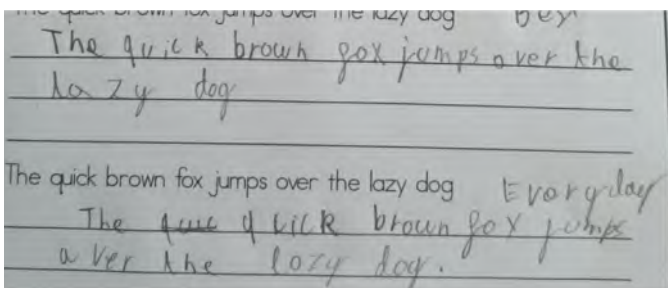 The quick brown fox jumps over the lazy dog
The quick brown gox jumps over the
lazy dog
The quick brown fox jumps over the lazy dog Evoryday
The quick brown gox jumps
aver the lozy dog.